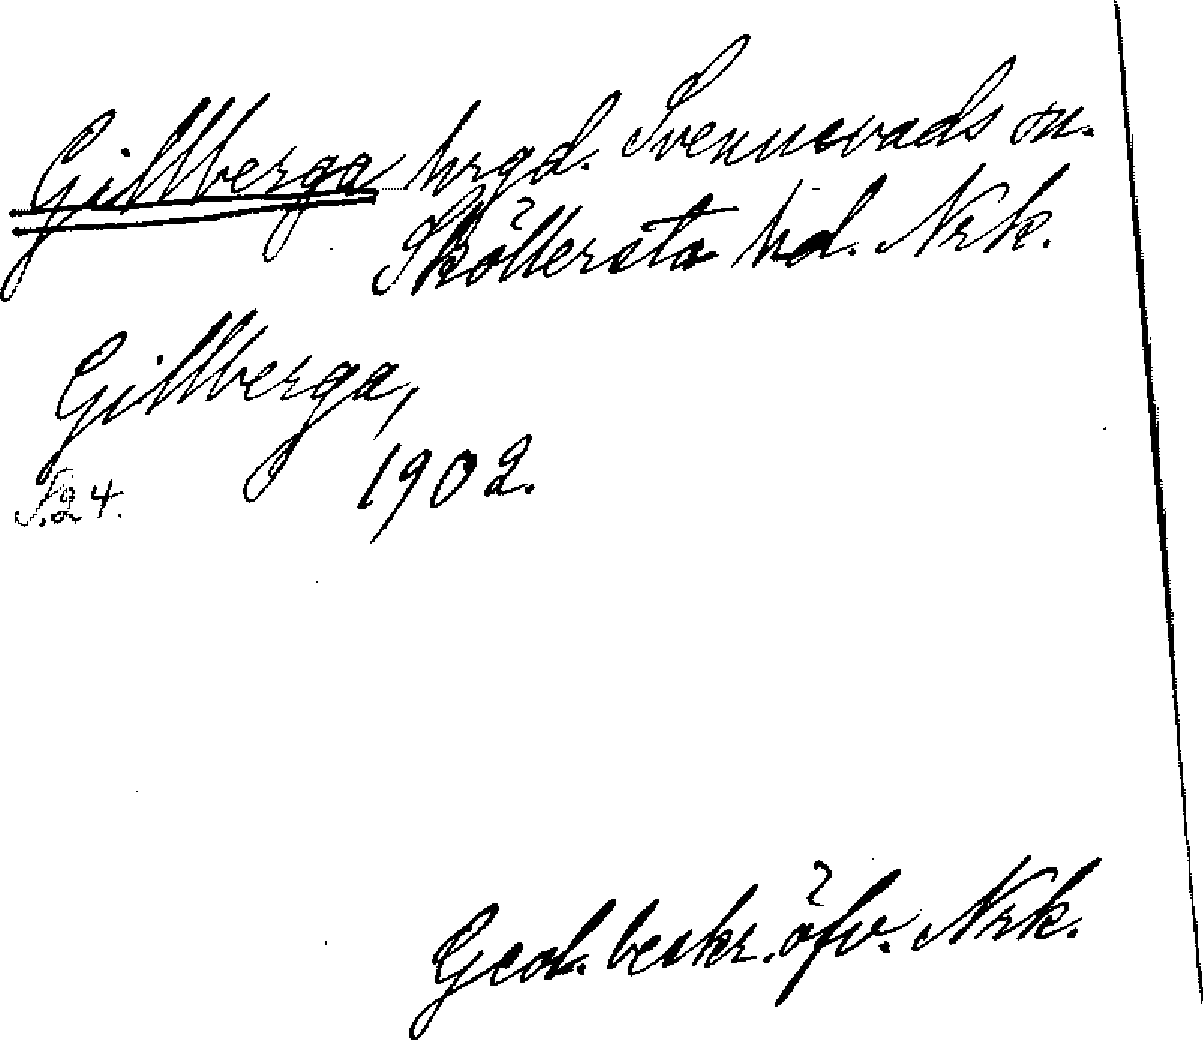 Gillberga hrgd. Svennevads sn.
Sköllersta hd. Nrk.
Gillberga,
1902.
S.24.
Geol. beskr. öfv. Nrk.